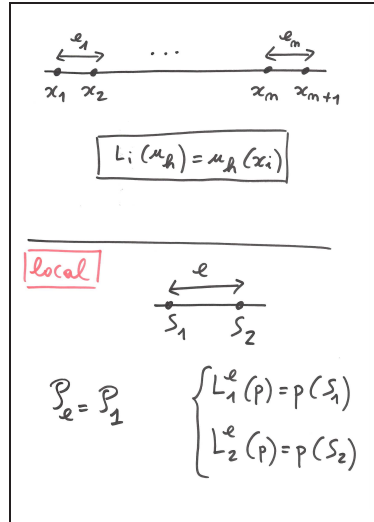 e₁ ... eₙ
x₁ x₂ xₙ xₙ₊₁
Lᵢ(uₕ) = uₕ(xᵢ)
local
e
S₁ S₂
Pₑ = P₁
L₁ᵉ(p) = p(S₁)
L₂ᵉ(p) = p(S₂)